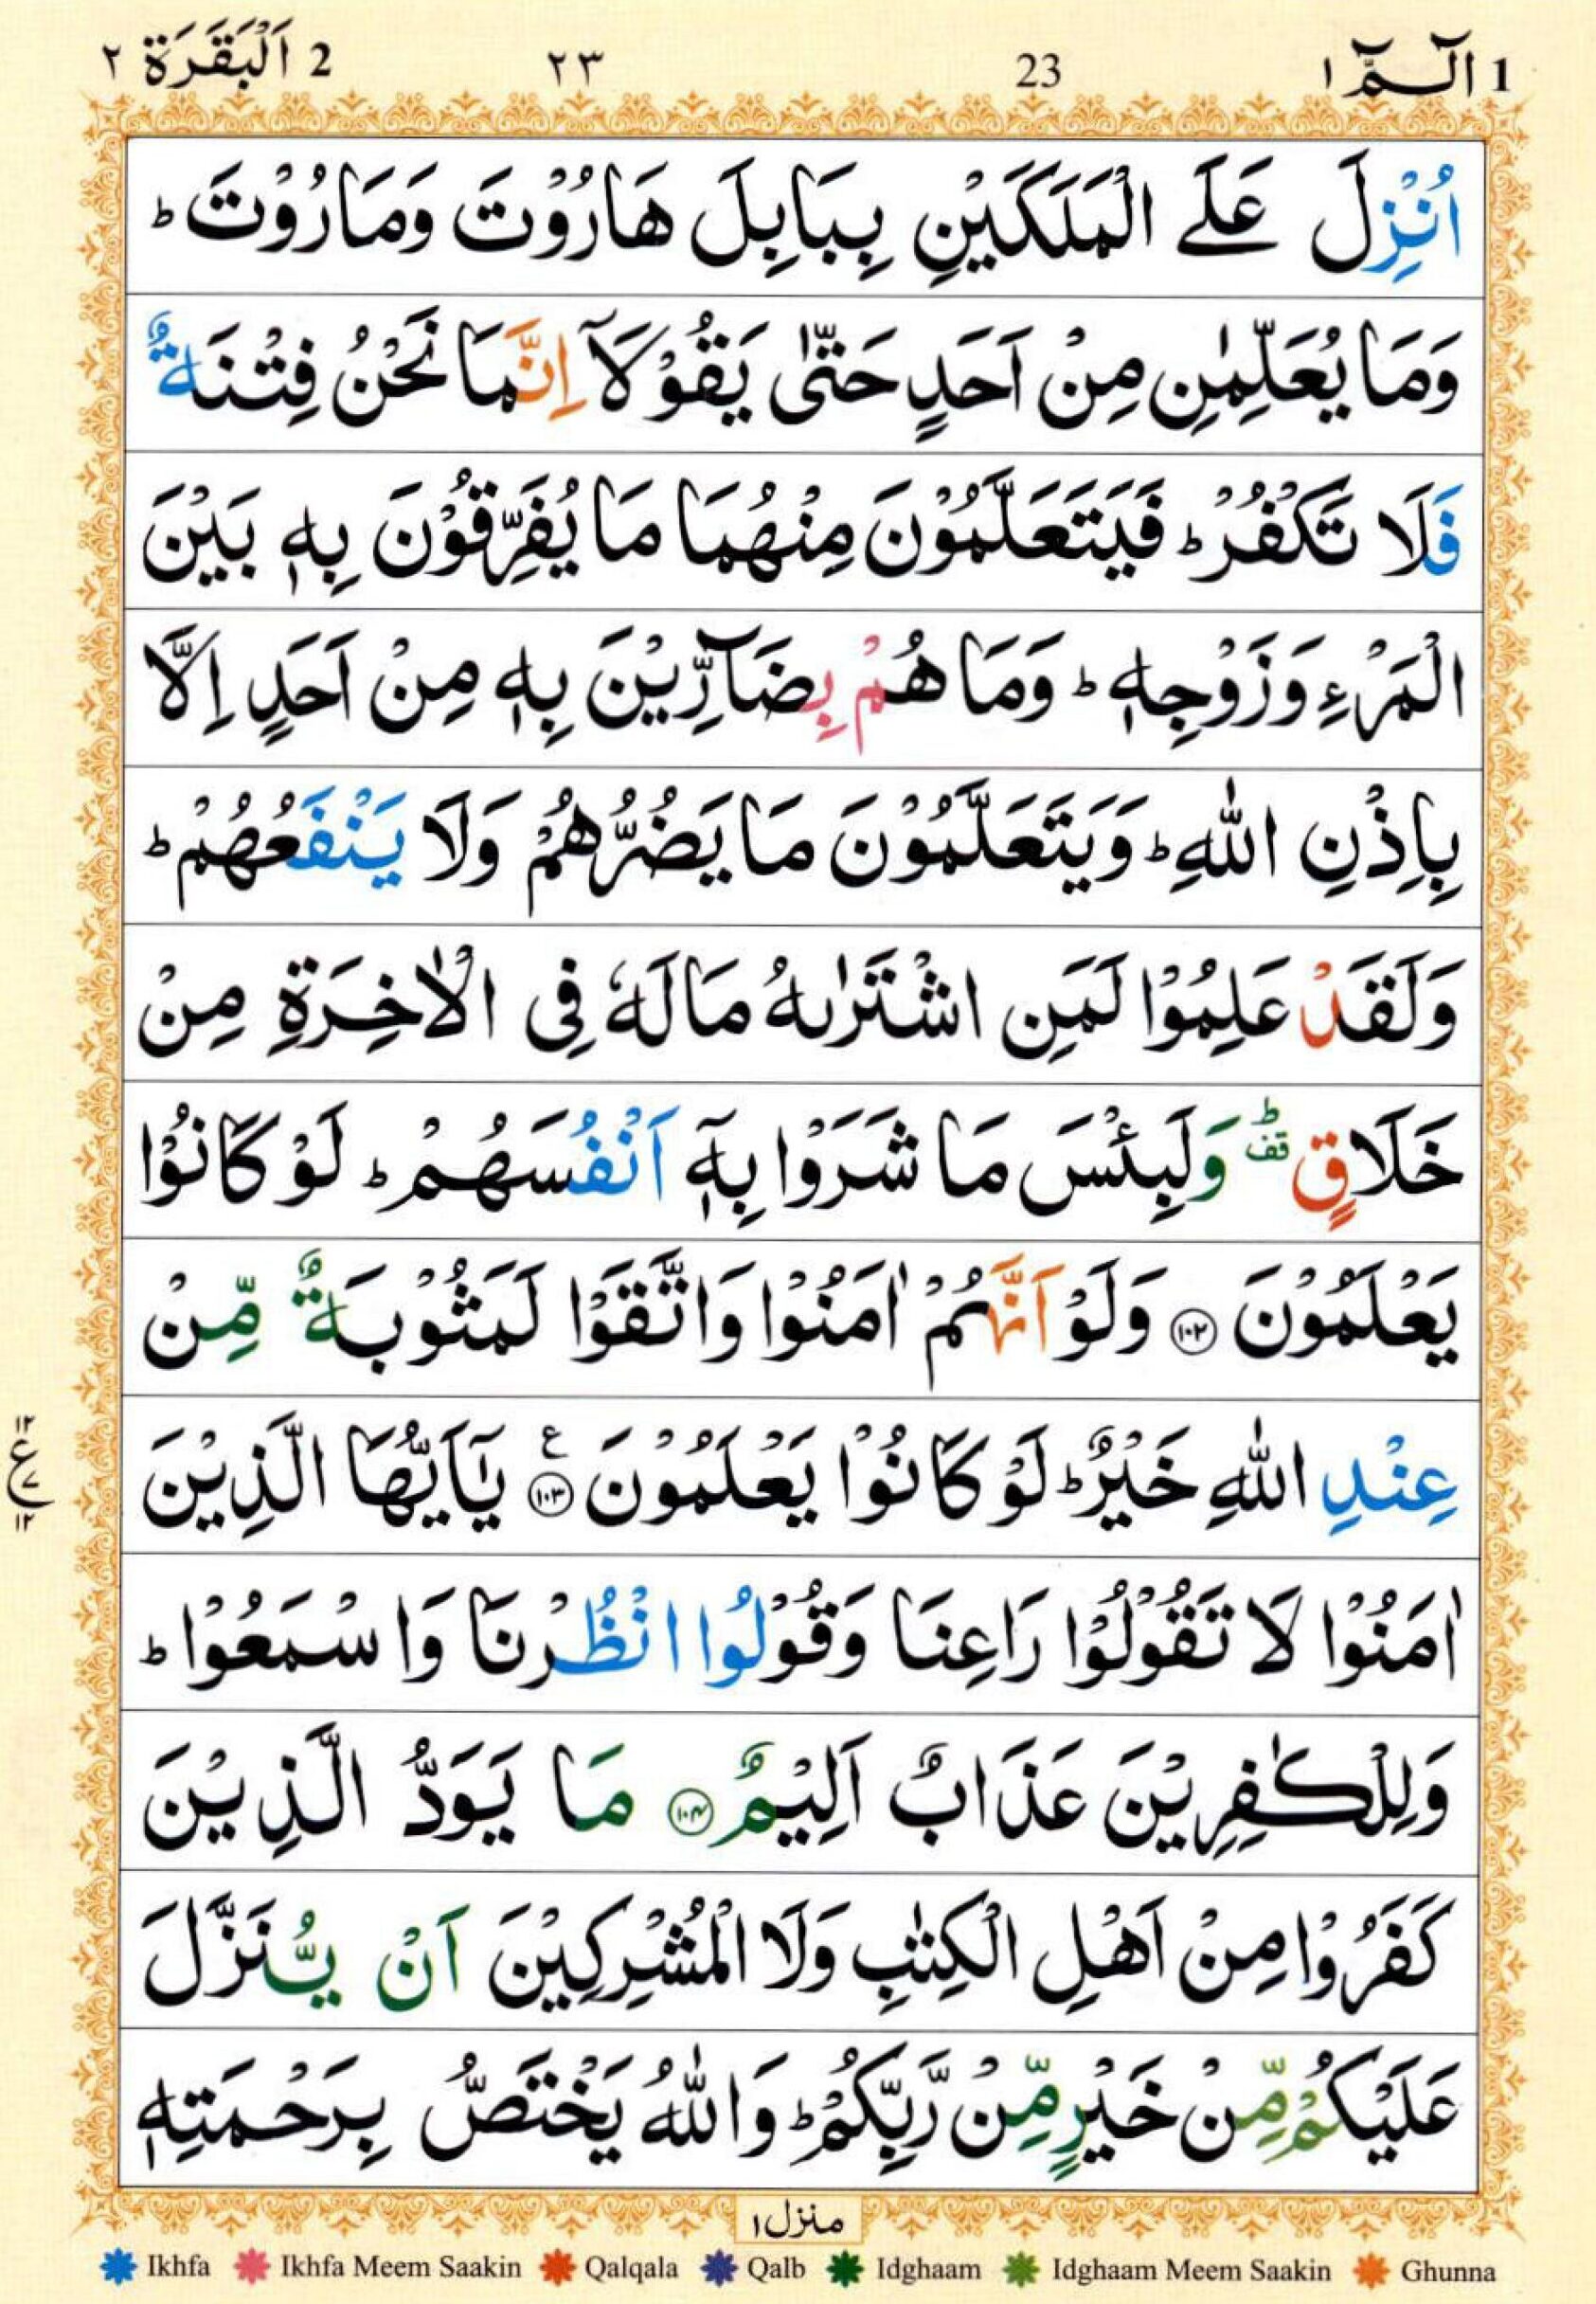 1 الٓـمّٓ ١ 23 ٢٣ 2 اَلْبَقَرَة ٢
اُنْزِلَ عَلَے الْمَلَكَيْنِ بِبَابِلَ هَارُوْتَ وَمَارُوْتَ ؕ
وَمَا يُعَلِّمٰنِ مِنْ اَحَدٍ حَتّٰى يَقُوْلَاۤ اِنَّمَا نَحْنُ فِتْنَةٌ
فَلَا تَكْفُرْ ؕ فَيَتَعَلَّمُوْنَ مِنْهُمَا مَا يُفَرِّقُوْنَ بِهٖ بَيْنَ
الْمَرْءِ وَزَوْجِهٖ ؕ وَمَا هُمْ بِضَآرِّيْنَ بِهٖ مِنْ اَحَدٍ اِلَّا
بِاِذْنِ اللّٰهِ ؕ وَيَتَعَلَّمُوْنَ مَا يَضُرُّهُمْ وَلَا يَنْفَعُهُمْ ؕ
وَلَقَدْ عَلِمُوْا لَمَنِ اشْتَرٰىهُ مَا لَهٗ فِى الْاٰخِرَةِ مِنْ
خَلَاقٍ ؕ قف وَلَبِئْسَ مَا شَرَوْا بِهٖۤ اَنْفُسَهُمْ ؕ لَوْ كَانُوْا
يَعْلَمُوْنَ ۝۱۰۲ وَلَوْ اَنَّهُمْ اٰمَنُوْا وَاتَّقَوْا لَمَثُوْبَةٌ مِّنْ
عِنْدِ اللّٰهِ خَيْرٌ ؕ لَوْ كَانُوْا يَعْلَمُوْنَ ۝۱۰۳ ع يٰۤاَيُّهَا الَّذِيْنَ
۱۲ ع ۷ ۱۲
اٰمَنُوْا لَا تَقُوْلُوْا رَاعِنَا وَقُوْلُوا انْظُرْنَا وَاسْمَعُوْا ؕ
وَلِلْكٰفِرِيْنَ عَذَابٌ اَلِيْمٌ ۝۱۰۴ مَا يَوَدُّ الَّذِيْنَ
كَفَرُوْا مِنْ اَهْلِ الْكِتٰبِ وَلَا الْمُشْرِكِيْنَ اَنْ يُّنَزَّلَ
عَلَيْكُمْ مِّنْ خَيْرٍ مِّنْ رَّبِّكُمْ ؕ وَاللّٰهُ يَخْتَصُّ بِرَحْمَتِهٖ
منزل ۱
Ikhfa Ikhfa Meem Saakin Qalqala Qalb Idghaam Idghaam Meem Saakin Ghunna